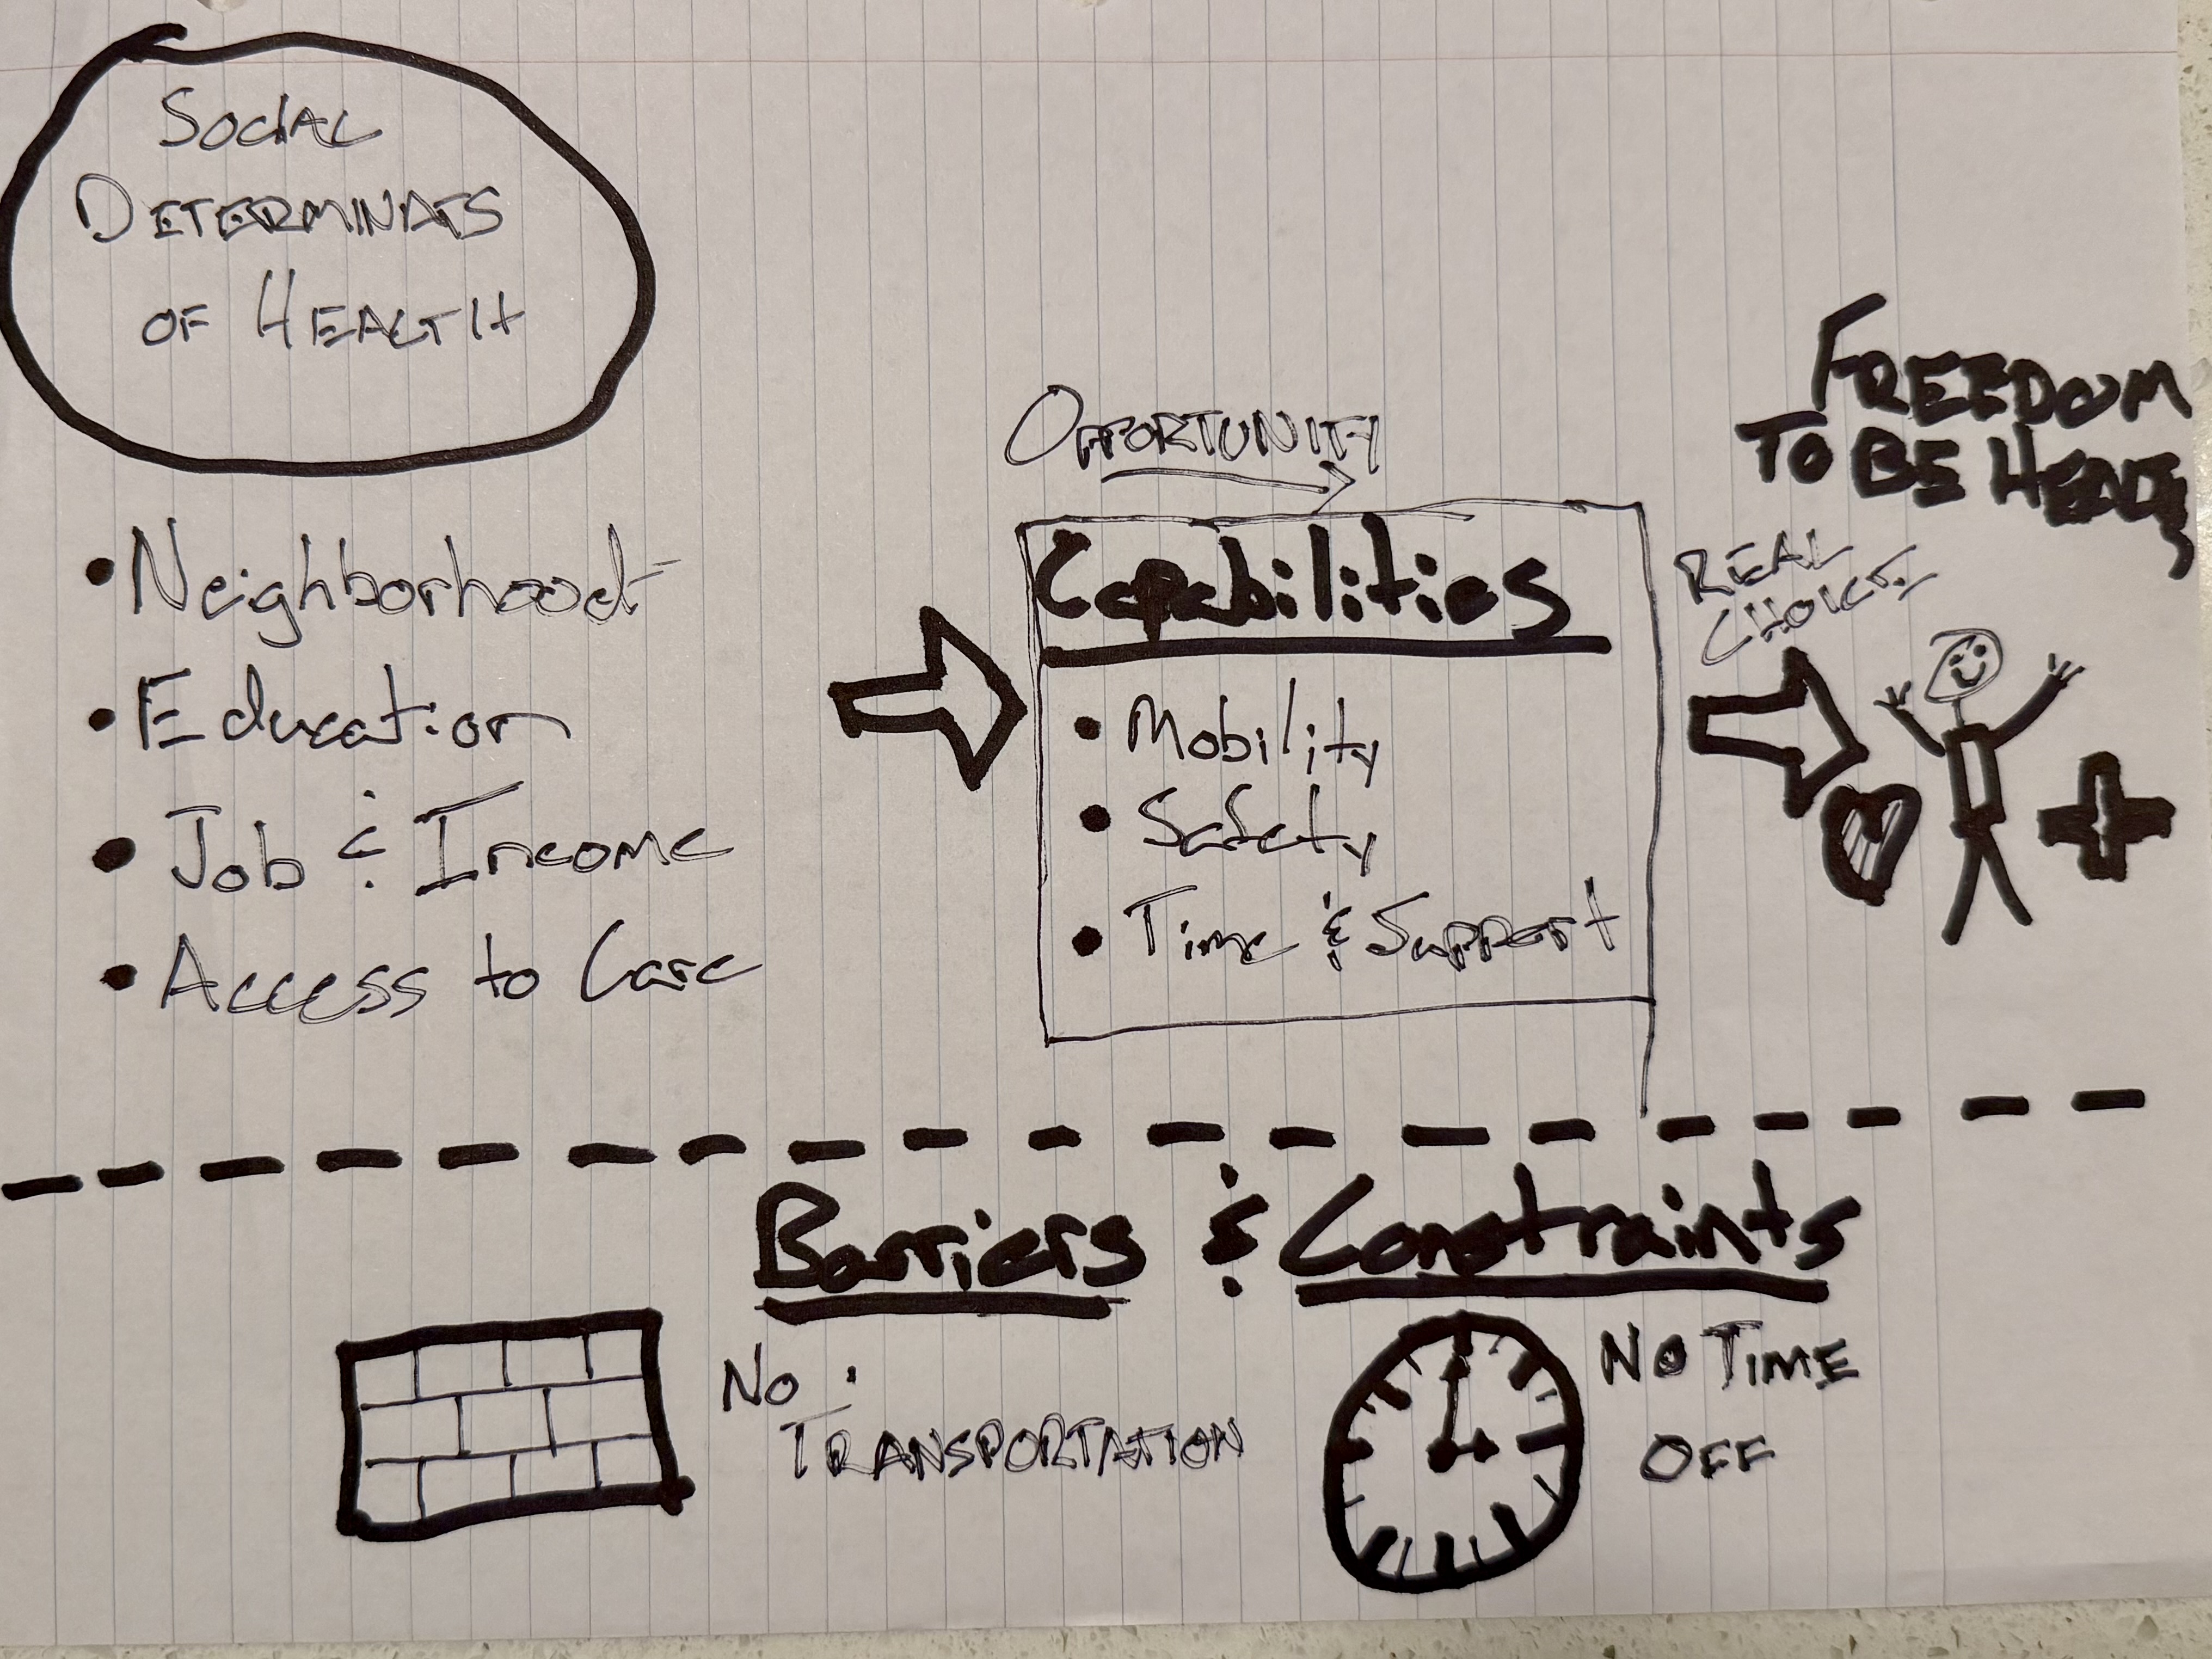 SOCIAL
DETERMINATS
OF HEALTH
• Neighborhood
• Education
• Job & Income
• Access to Care
OPPORTUNITY
Capabilities
• Mobility
• Safety
• Time & Support
REAL
CHOICE
FREEDOM
TO BE
Barriers & Constraints
NO
TRANSPORTATION
NO TIME
OFF